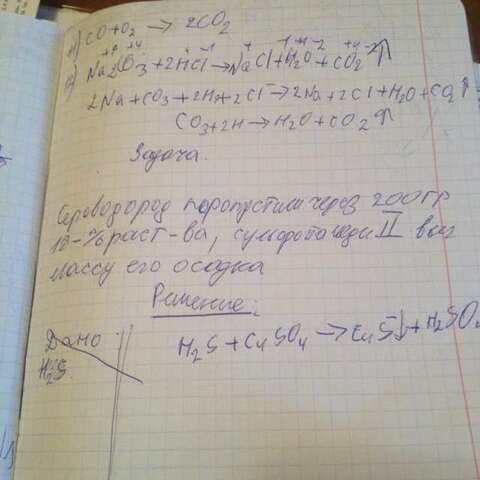 CO+O2 → 2CO2
Na2CO3+2HCl → NaCl+H2O+CO2↑
2Na+CO3+2H+2Cl → 2Na+2Cl+H2O+CO2↑
CO3+2H → H2O+CO2↑
Задача.
Сероводород пропустили через 200гр
раст-ва, II
массу его осадка
Решение:
Дано
H2S
H2S+CuSO4 → CuS↓+H2SO4